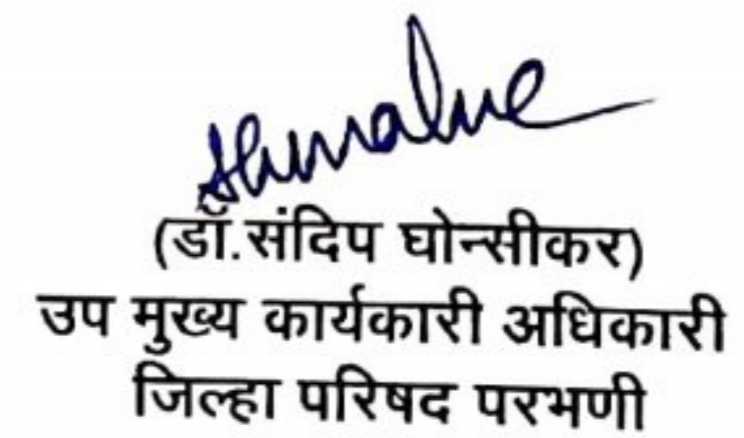 (डॉ.संदिप घोन्सीकर)
उप मुख्य कार्यकारी अधिकारी
जिल्हा परिषद परभणी